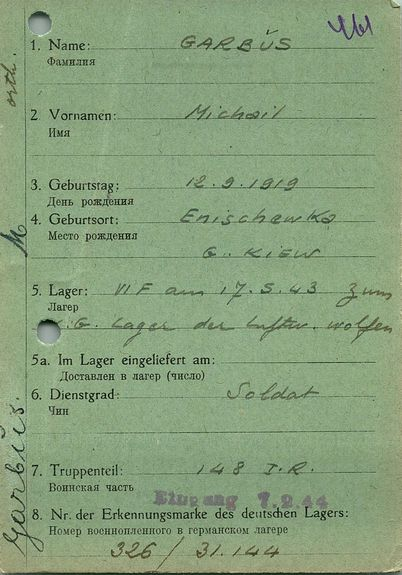 1. Name: GARBŬS
Фамилия
2 Vornamen: Michail
Имя
3. Geburtstag: 12.9.1919
День рождения
4. Geburtsort: Enischewka
Место рождения
G. KIEW
5. Lager: VI F am 17.5.43 zum
Лагер
K.G. Lager der Luftw. Wolfen
5a. Im Lager eingeliefert am:
Доставлен в лагер (число)
6. Dienstgrad: Soldat
Чин
7. Truppenteil: 148 I.R.
Воинская часть
Eingang 7.2.44
8. Nr. der Erkennungsmarke des deutschen Lagers:
Номер военнопленного в германском лагере
326 / 31.144
Garbŭs. M
orth.